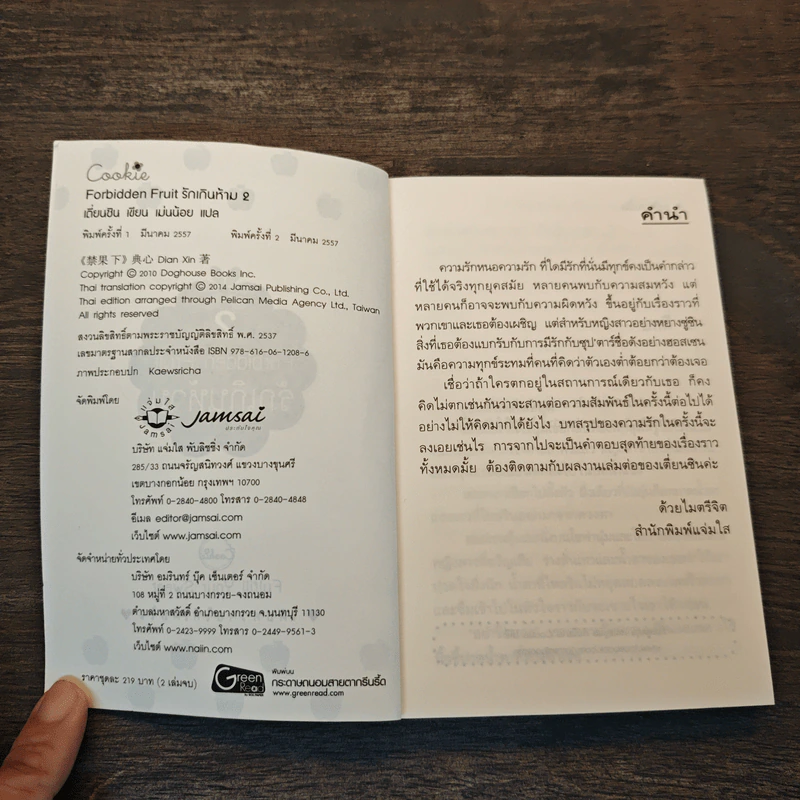 Cookie
Forbidden Fruit รักเกินห้าม 2
เตี่ยนซิน เขียน เม่นน้อย แปล
พิมพ์ครั้งที่ 1 มีนาคม 2557 พิมพ์ครั้งที่ 2 มีนาคม 2557
《禁果 下》典心 Dian Xin 著
Copyright © 2010 Doghouse Books Inc.
Thai translation copyright © 2014 Jamsai Publishing Co., Ltd.
Thai edition arranged through Pelican Media Agency Ltd., Taiwan
All rights reserved
สงวนลิขสิทธิ์ตามพระราชบัญญัติลิขสิทธิ์ พ.ศ. 2537
เลขมาตรฐานสากลประจำหนังสือ ISBN 978-616-06-1208-6
ภาพประกอบปก Kaewsricha
จัดพิมพ์โดย
แจ่มใส
Jamsai
Jamsai
บริษัท แจ่มใส พับลิชชิ่ง จำกัด
285/33 ถนนจรัญสนิทวงศ์ แขวงบางขุนศรี
เขตบางกอกน้อย กรุงเทพฯ 10700
โทรศัพท์ 0-2840-4800 โทรสาร 0-2840-4848
อีเมล editor@jamsai.com
เว็บไซต์ www.jamsai.com
จัดจำหน่ายทั่วประเทศโดย
บริษัท อมรินทร์ บุ๊ค เซ็นเตอร์ จำกัด
108 หมู่ที่ 2 ถนนบางกรวย-จงถนอม
ตำบลมหาสวัสดิ์ อำเภอบางกรวย จ.นนทบุรี 11130
โทรศัพท์ 0-2423-9999 โทรสาร 0-2449-9561-3
เว็บไซต์ www.naiin.com
ราคาชุดละ 219 บาท (2 เล่มจบ)
Green Read
พิมพ์บน
กระดาษถนอมสายตากรีนรี้ด
www.greenread.com
คำนำ
ความรักหนอความรัก ที่ใดมีรักที่นั่นมีทุกข์คงเป็นคำกล่าว
ที่ใช้ได้จริงทุกยุคสมัย หลายคนพบกับความสมหวัง แต่
หลายคนก็อาจจะพบกับความผิดหวัง ขึ้นอยู่กับเรื่องราวที่
พวกเขาและเธอต้องเผชิญ แต่สำหรับหญิงสาวอย่างหยางซู่ซิน
สิ่งที่เธอต้องแบกรับกับการมีรักกับซุป'ตาร์ชื่อดังอย่างฮอสเซน
มันคือความทุกข์ระทมที่คนที่คิดว่าตัวเองต่ำต้อยกว่าต้องเจอ
เชื่อว่าถ้าใครตกอยู่ในสถานการณ์เดียวกับเธอ ก็คง
คิดไม่ตกเช่นกันว่าจะสานต่อความสัมพันธ์ในครั้งนี้ต่อไปได้
อย่างไม่ให้คิดมากได้ยังไง บทสรุปของความรักในครั้งนี้จะ
ลงเอยเช่นไร การจากไปจะเป็นคำตอบสุดท้ายของเรื่องราว
ทั้งหมดมั้ย ต้องติดตามกับผลงานเล่มต่อของเตี่ยนซินค่ะ
ด้วยไมตรีจิต
สำนักพิมพ์แจ่มใส